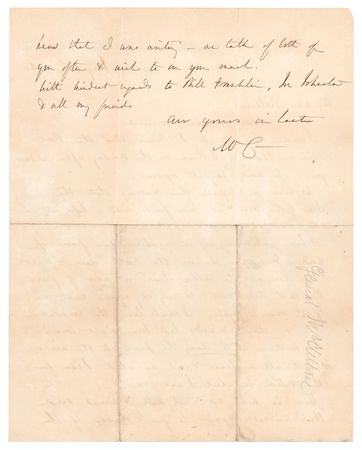 knew that I was writing — we talk of both of
you often & wish to see you much.
With kindest regards to Bill Franklin,
& all my friends
Am yours in haste
McC
Genl McClellan